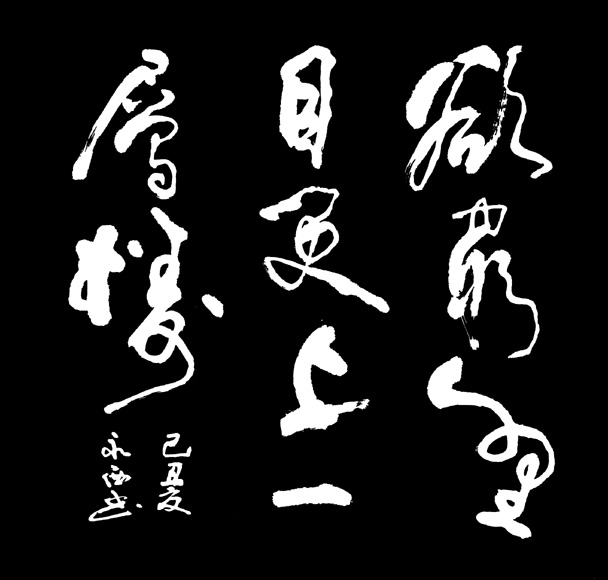 欲窮千里
目更上一
層樓
己丑夏
永西书